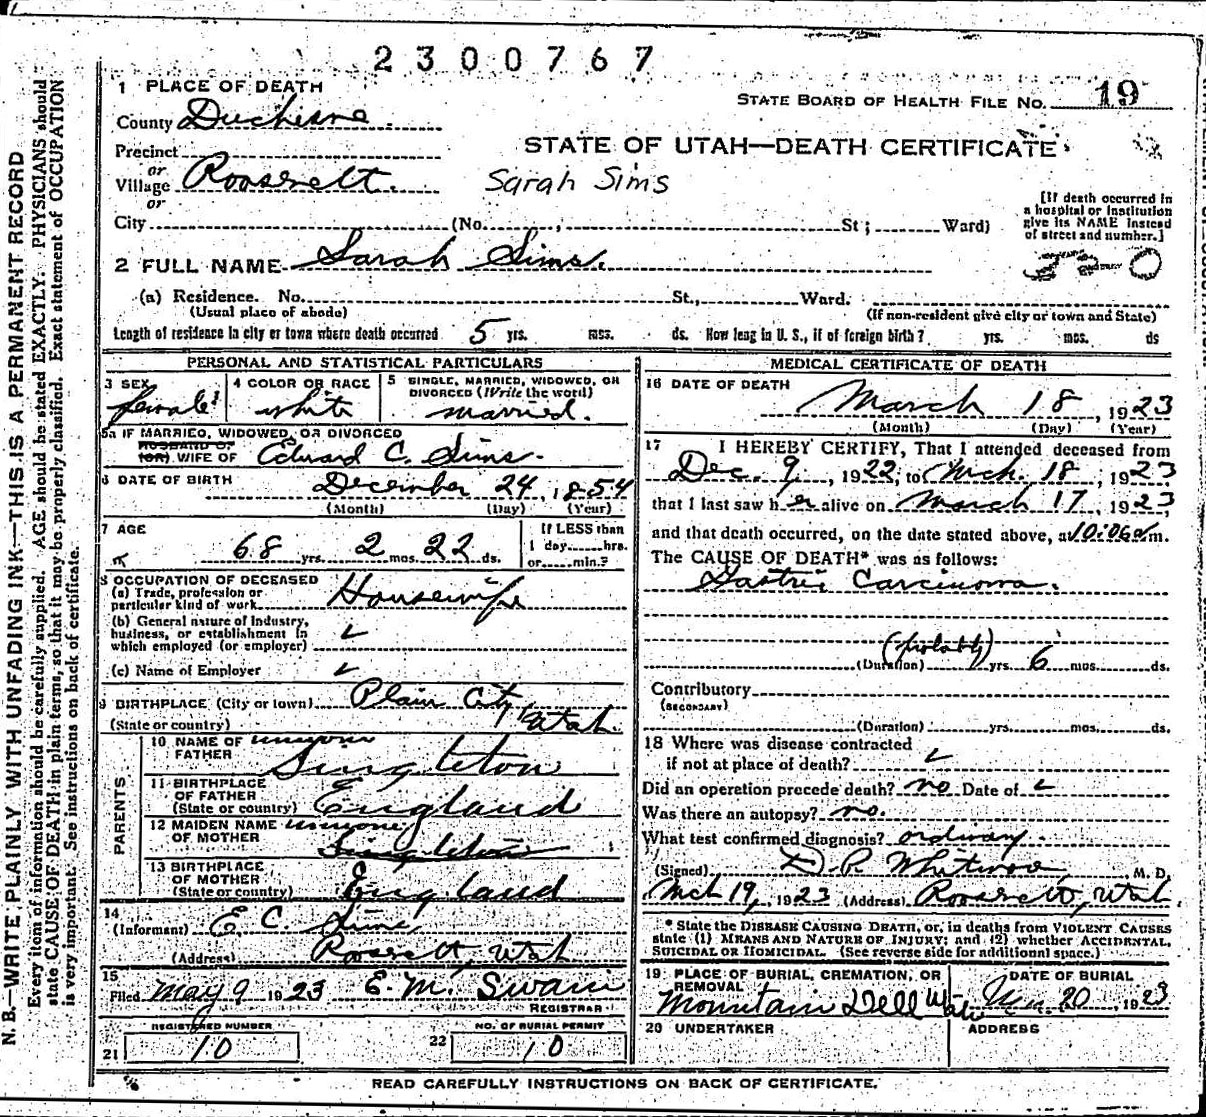 2300767
1 PLACE OF DEATH
STATE BOARD OF HEALTH FILE NO. 19
County Duchesne
STATE OF UTAH—DEATH CERTIFICATE
Precinct
or
Village Roosevelt.
Sarah Sims
or
City (No. St; Ward)
[If death occurred in a hospital or institution give its NAME instead of street and number.]
2 FULL NAME Sarah Sims.
(a) Residence. No. St., Ward.
(Usual place of abode) (If non-resident give city or town and State)
Length of residence in city or town where death occurred 5 yrs. mos. ds. How long in U. S., if of foreign birth? yrs. mos. ds
PERSONAL AND STATISTICAL PARTICULARS
3 SEX female
4 COLOR OR RACE white
5 SINGLE, MARRIED, WIDOWED, OR DIVORCED (Write the word) married.
5a IF MARRIED, WIDOWED, OR DIVORCED
HUSBAND OF
(OR) WIFE OF Edward C. Sims.
6 DATE OF BIRTH December 24, 1854
(Month) (Day) (Year)
7 AGE
68 yrs. 2 mos. 22 ds.
If LESS than
1 day......hrs.
or......min.?
8 OCCUPATION OF DECEASED
(a) Trade, profession or particular kind of work Housewife
(b) General nature of Industry, business, or establishment in which employed (or employer) ✓
(c) Name of Employer ✓
9 BIRTHPLACE (City or town) Plain City,
(State or country) Utah.
PARENTS
10 NAME OF FATHER Singleton
11 BIRTHPLACE OF FATHER (State or country) England
12 MAIDEN NAME OF MOTHER Singleton
13 BIRTHPLACE OF MOTHER (State or country) England
14
(Informant) E. C. Sims,
(Address) Roosevelt, Utah
15
Filed May 9 1923 E. M. Swain
REGISTRAR
REGISTERED NUMBER
21 10
NO. OF BURIAL PERMIT
22 10
MEDICAL CERTIFICATE OF DEATH
16 DATE OF DEATH
March 18, 1923
(Month) (Day) (Year)
17 I HEREBY CERTIFY, That I attended deceased from
Dec. 9, 1922, to Mch. 18, 1923
that I last saw h er alive on March 17, 1923,
and that death occurred, on the date stated above, at 10:06 a.m.
The CAUSE OF DEATH* was as follows:
Gastric Carcinoma.
(probably)
(Duration) yrs. 6 mos. ds.
Contributory
(SECONDARY)
(Duration) yrs. mos. ds.
18 Where was disease contracted
if not at place of death? ✓
Did an operation precede death? no Date of ✓
Was there an autopsy? no.
What test confirmed diagnosis? ordinary.
(Signed) M. D.
Mch 19, 1923 (Address) Roosevelt, Utah.
* State the DISEASE CAUSING DEATH, or, in deaths from VIOLENT CAUSES
state (1) MEANS AND NATURE OF INJURY; and (2) whether ACCIDENTAL,
SUICIDAL OR HOMICIDAL. (See reverse side for additional space.)
19 PLACE OF BURIAL, CREMATION, OR REMOVAL
Mountain Dell Utah
DATE OF BURIAL
20 1923
20 UNDERTAKER
ADDRESS
READ CAREFULLY INSTRUCTIONS ON BACK OF CERTIFICATE.
N. B.—WRITE PLAINLY WITH UNFADING INK—THIS IS A PERMANENT RECORD
Every item of information should be carefully supplied. AGE should be stated EXACTLY. PHYSICIANS should
state CAUSE OF DEATH in plain terms, so that it may be properly classified. Exact statement of OCCUPATION
is very important. See instructions on back of certificate.